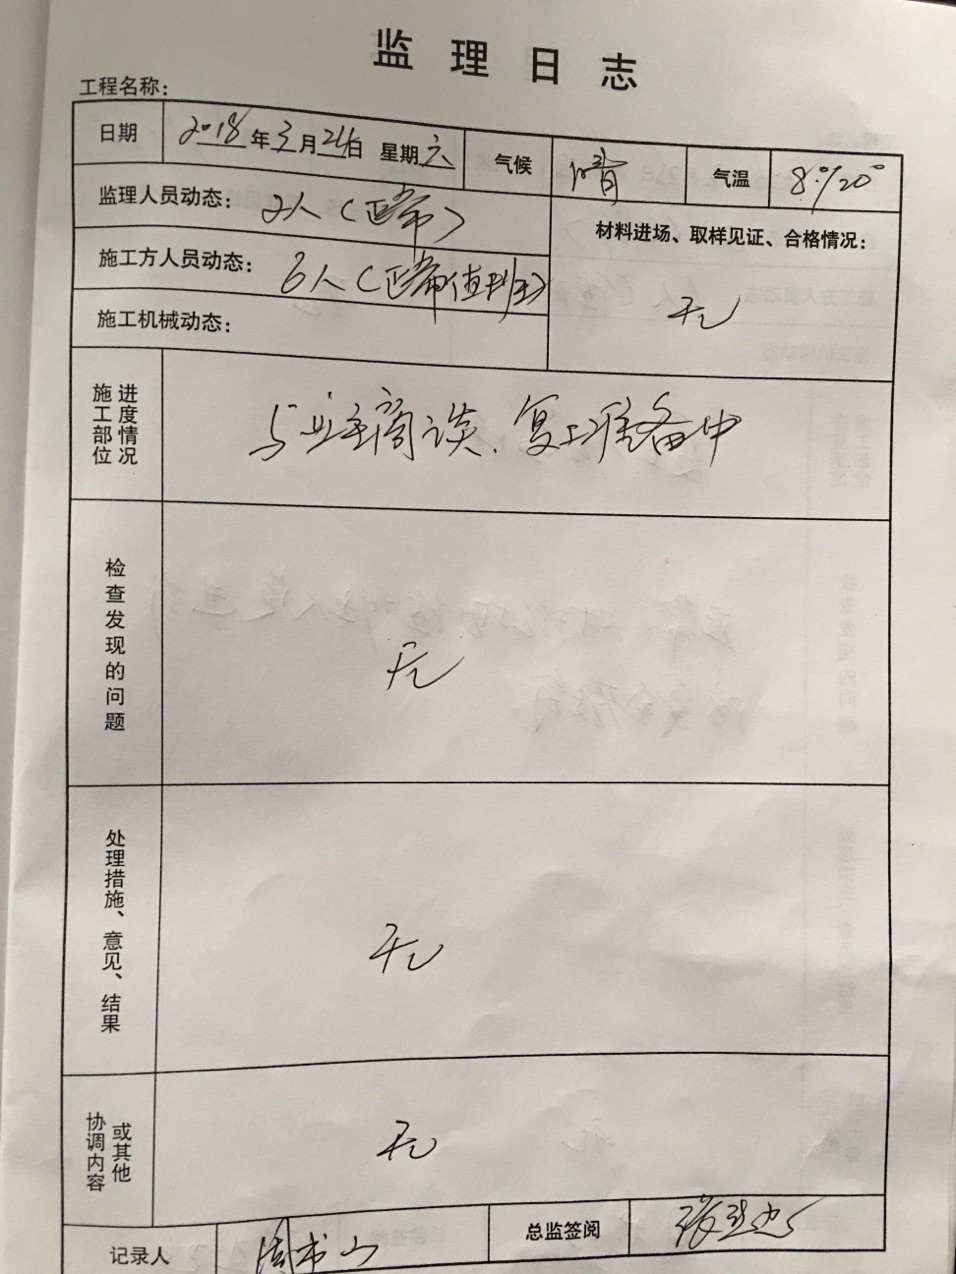 监理日志
工程名称：
日期 2018年3月24日 星期六 气候 晴 气温 8°/20°
监理人员动态： 2人（正常）
材料进场、取样见证、合格情况：
无
施工方人员动态： 6人（正常值班）
施工机械动态：
施工部位
进度情况
与业主商谈、复工准备中
检查发现的问题
无
处理措施、意见、结果
无
协调内容
或其他
无
记录人
总监签阅